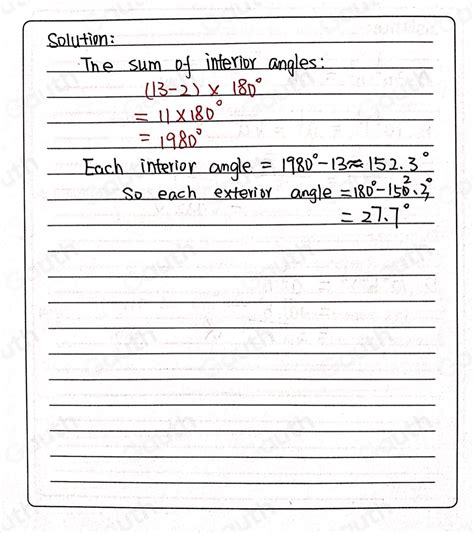 Solution:
The sum of interior angles:
(13-2) × 180°
= 11 × 180°
= 1980°
Each interior angle = 1980° - 13 ≈ 152.3°
So each exterior angle = 180° - 152.3°
= 27.7°